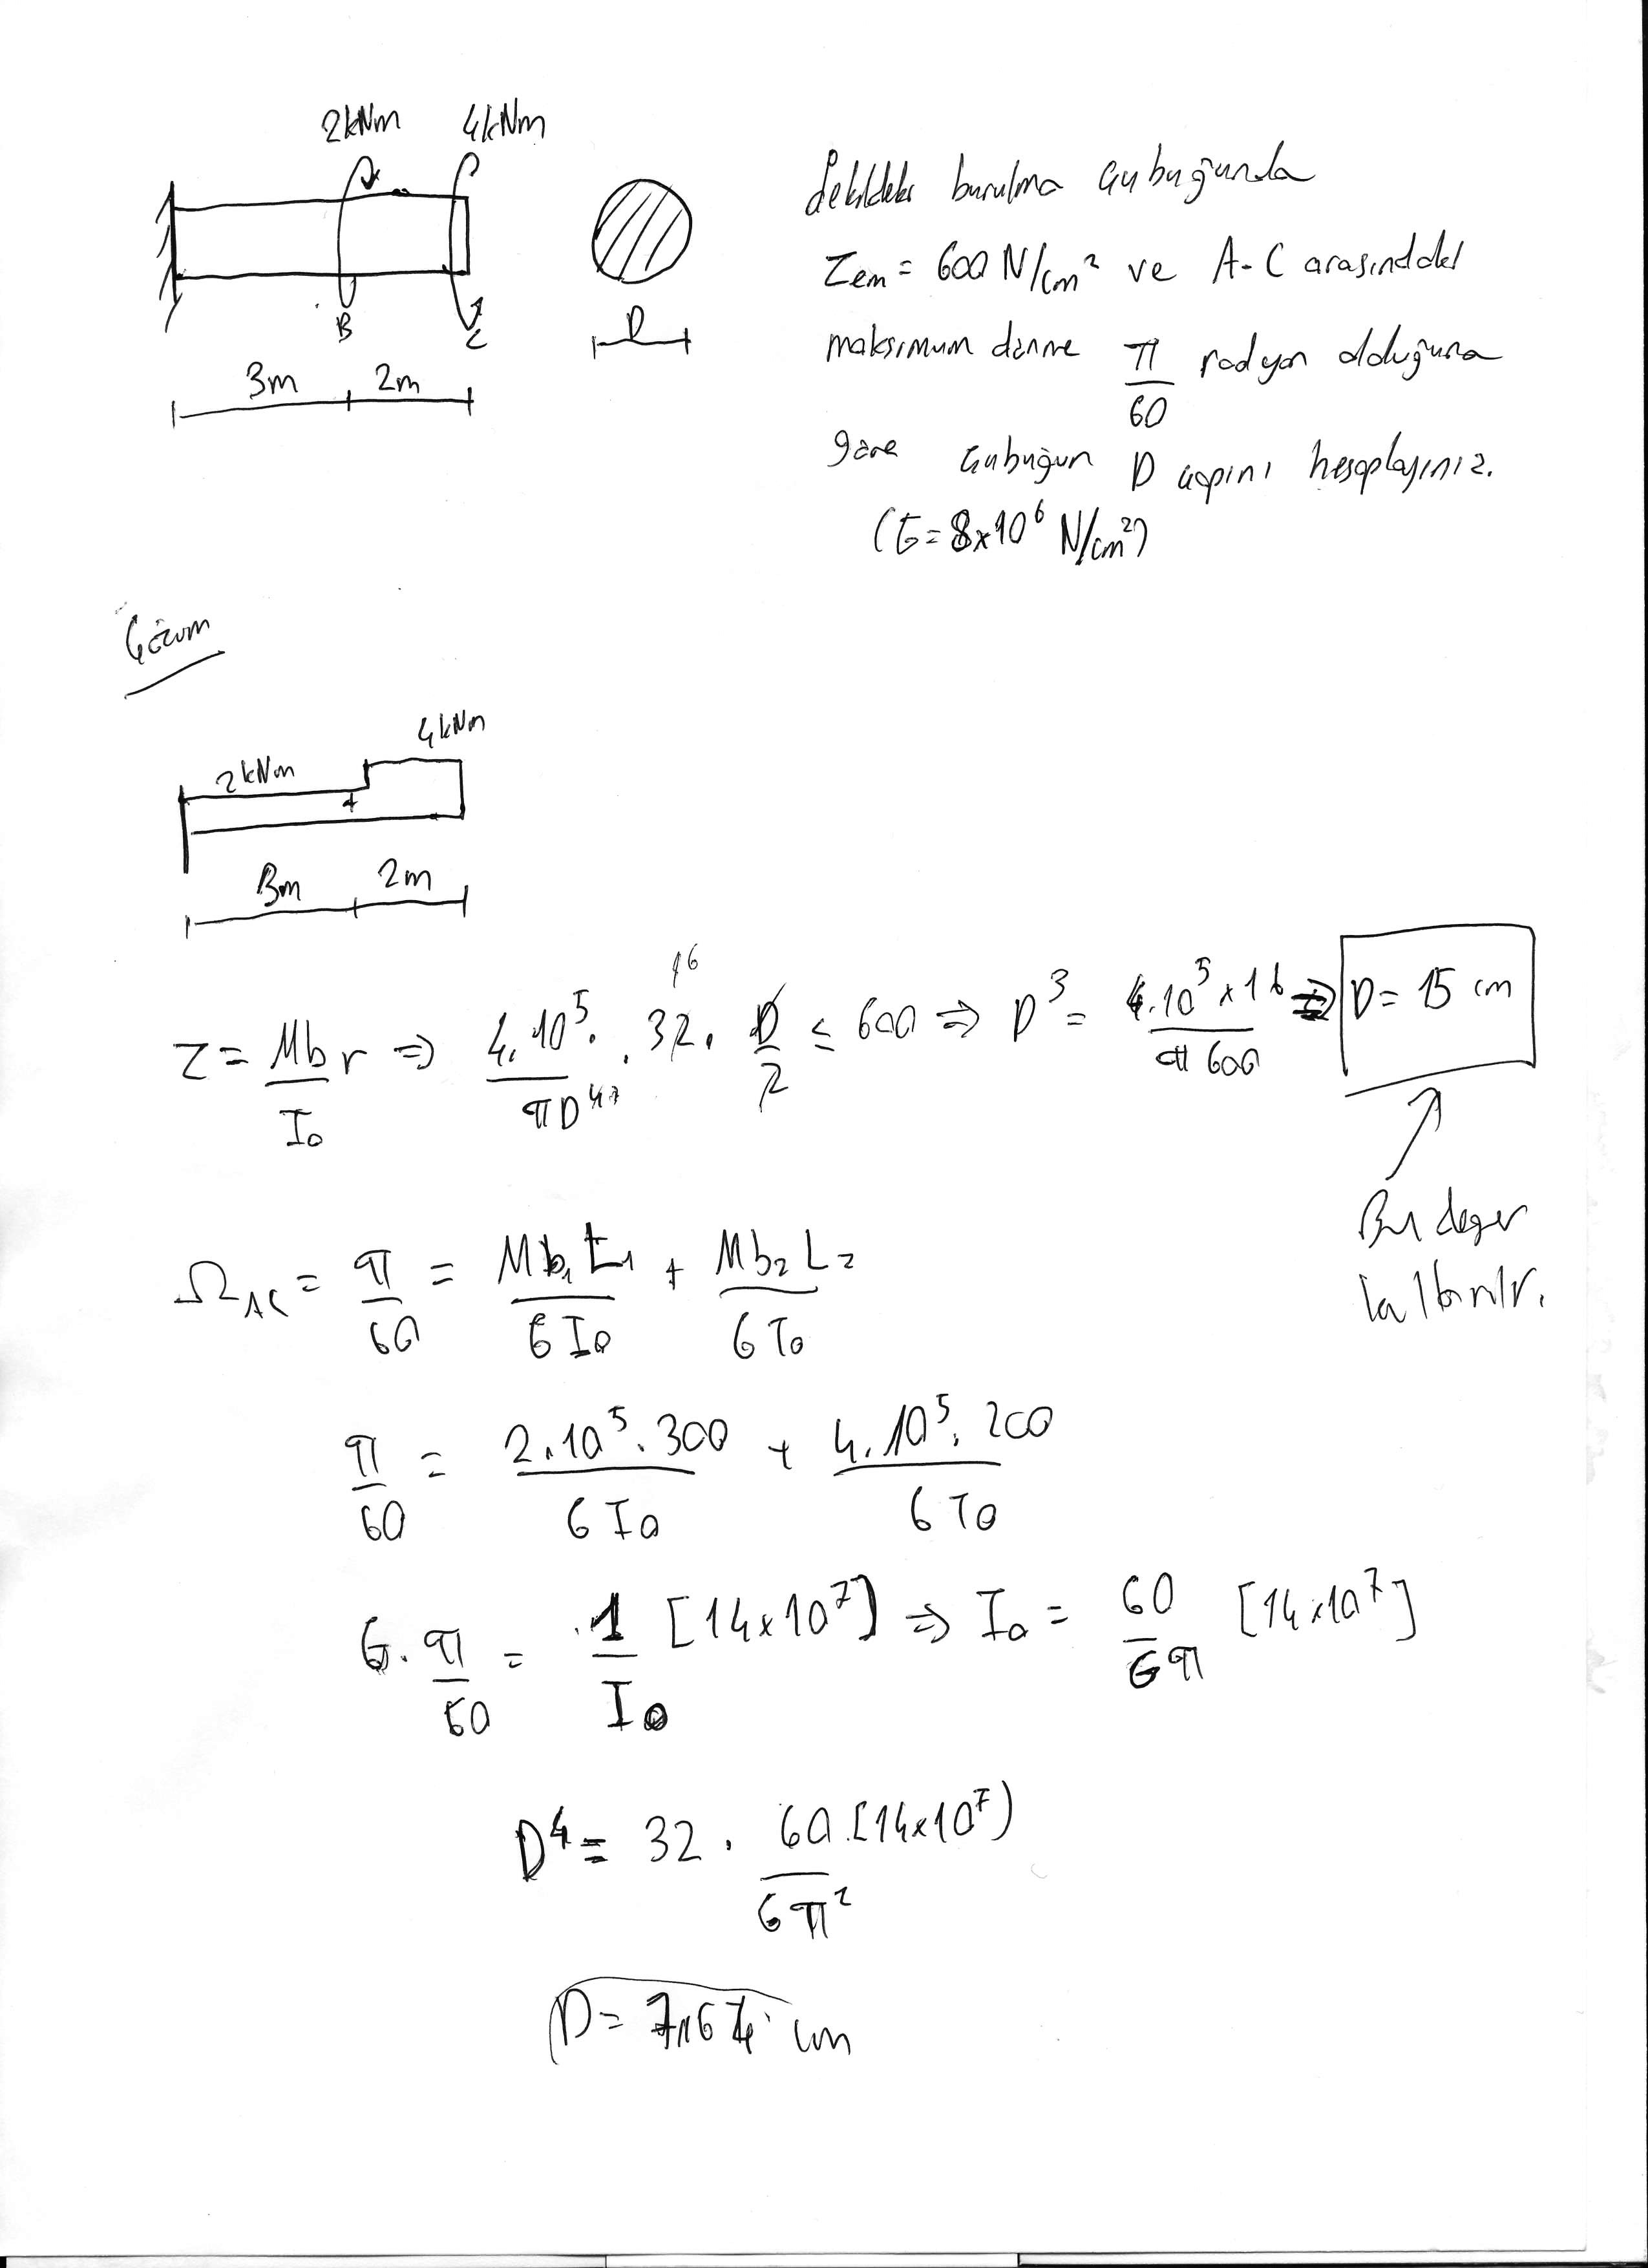 2kNm 4kNm
B C
3m 2m
D
Şekildeki burulma çubuğunda
τem = 600 N/cm² ve A-C arasındaki
maksimum dönme π/60 radyan olduğuna
göre çubuğun D çapını hesaplayınız.
(G=8x10⁶ N/cm²)
Çözüm
4kNm
2kNm
+
3m 2m
τ = Mb/I₀ r ⇒ 4.10⁵/πD⁴ . 32 . D/2 ≤ 600 ⇒ D³ = 4.10⁵x16/π600 ⇒ D = 15 cm
16
Bu değer
kullanılır.
Ω_AC = π/60 = Mb₁L₁/GI₀ + Mb₂L₂/GI₀
π/60 = 2.10⁵.300/GI₀ + 4.10⁵.200/GI₀
G.π/60 = 1/I₀ [14x10⁷] ⇒ I₀ = 60/Gπ [14x10⁷]
D⁴ = 32 . 60.[14x10⁷]/Gπ²
D = 7,64 cm